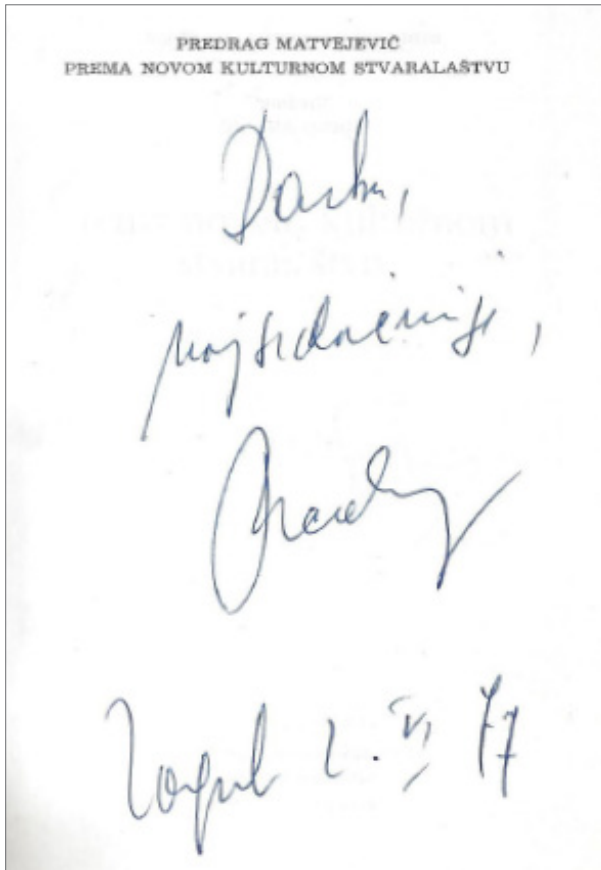 PREDRAG MATVEJEVIĆ
PREMA NOVOM KULTURNOM STVARALAŠTVU
Darku,
najsrdačnije,
Predrag
Zagreb 2. VI 77